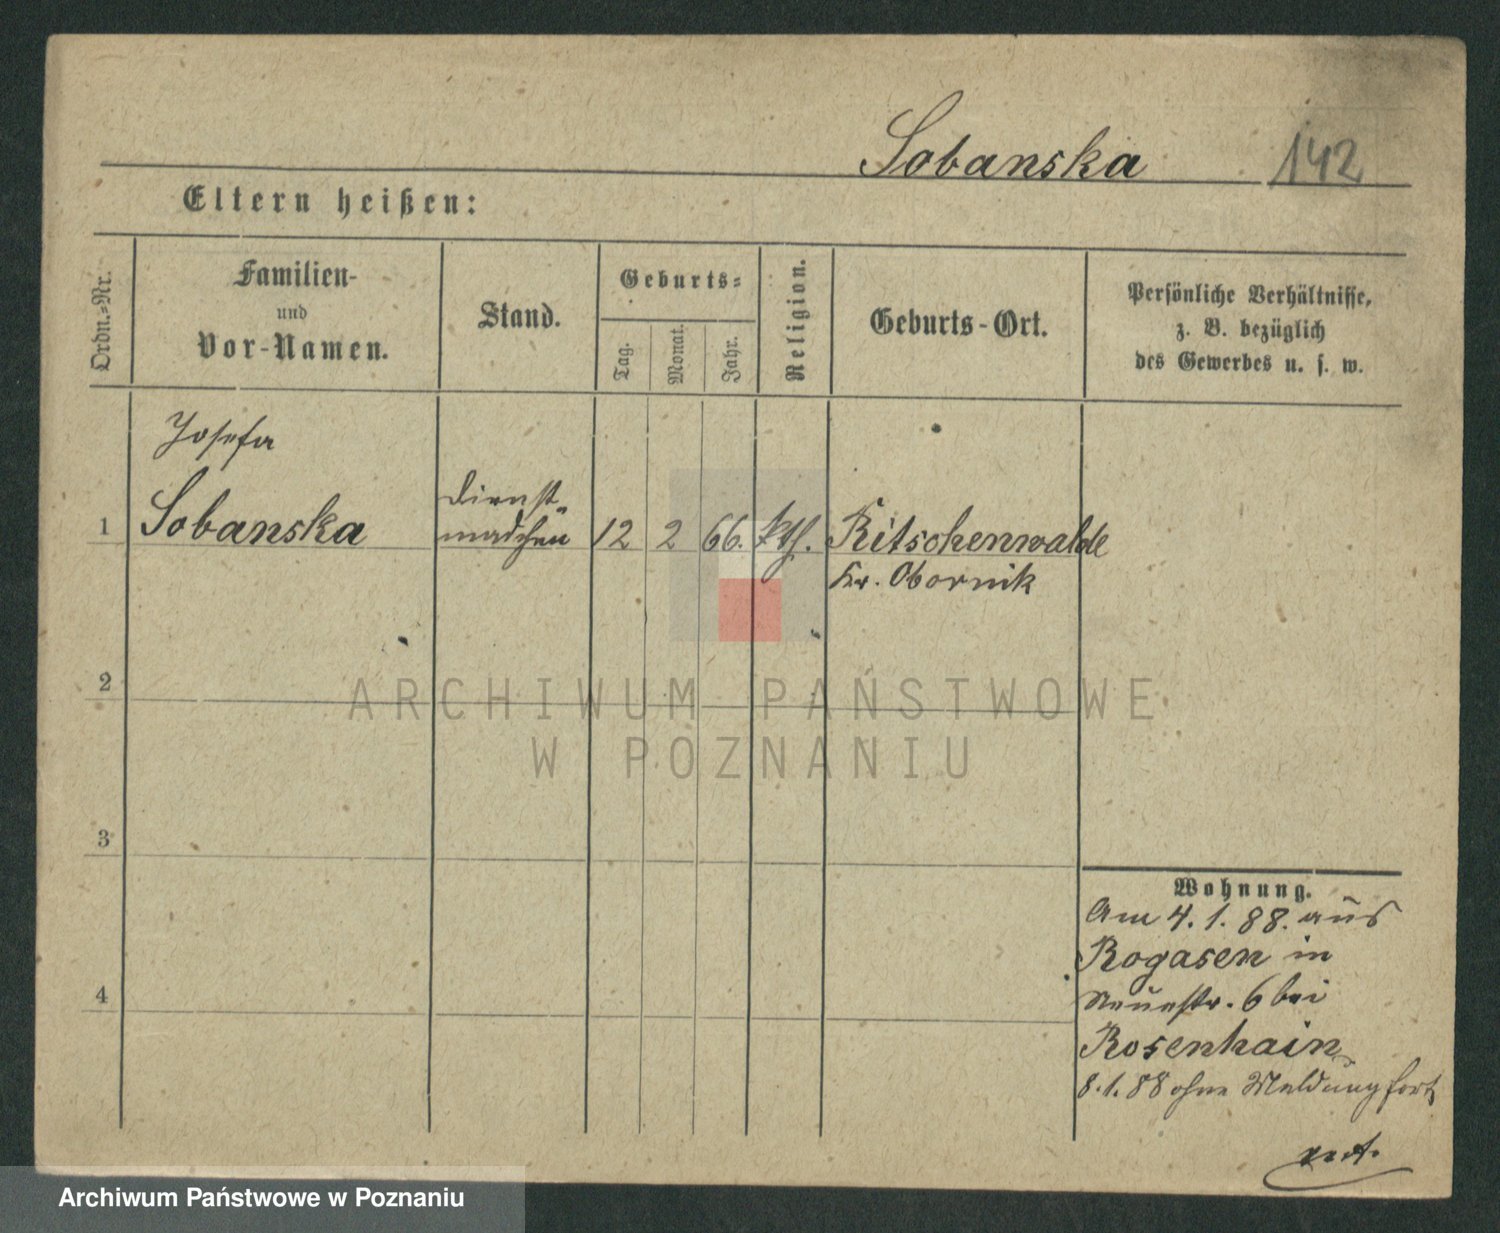 Sobanska 142
Eltern heißen:
Ordn.-Nr.
Familien-
und
Vor-Namen.
Stand.
Geburts-
Tag.
Monat.
Jahr.
Religion.
Geburts-Ort.
Persönliche Verhältnisse,
z. B. bezüglich
des Gewerbes u. s. w.
Josefa
1 Sobanska
Dienst-
madchen
12 2 66. kth.
Ritschenwalde
Kr. Obornik
2
3
4
Wohnung.
Am 4.1.88. aus
Rogasen in
Neuestr. 6 bei
Rosenhain
8.1.88 ohne Meldung fort
ARCHIWUM PAŃSTWOWE
W POZNANIU
Archiwum Państwowe w Poznaniu